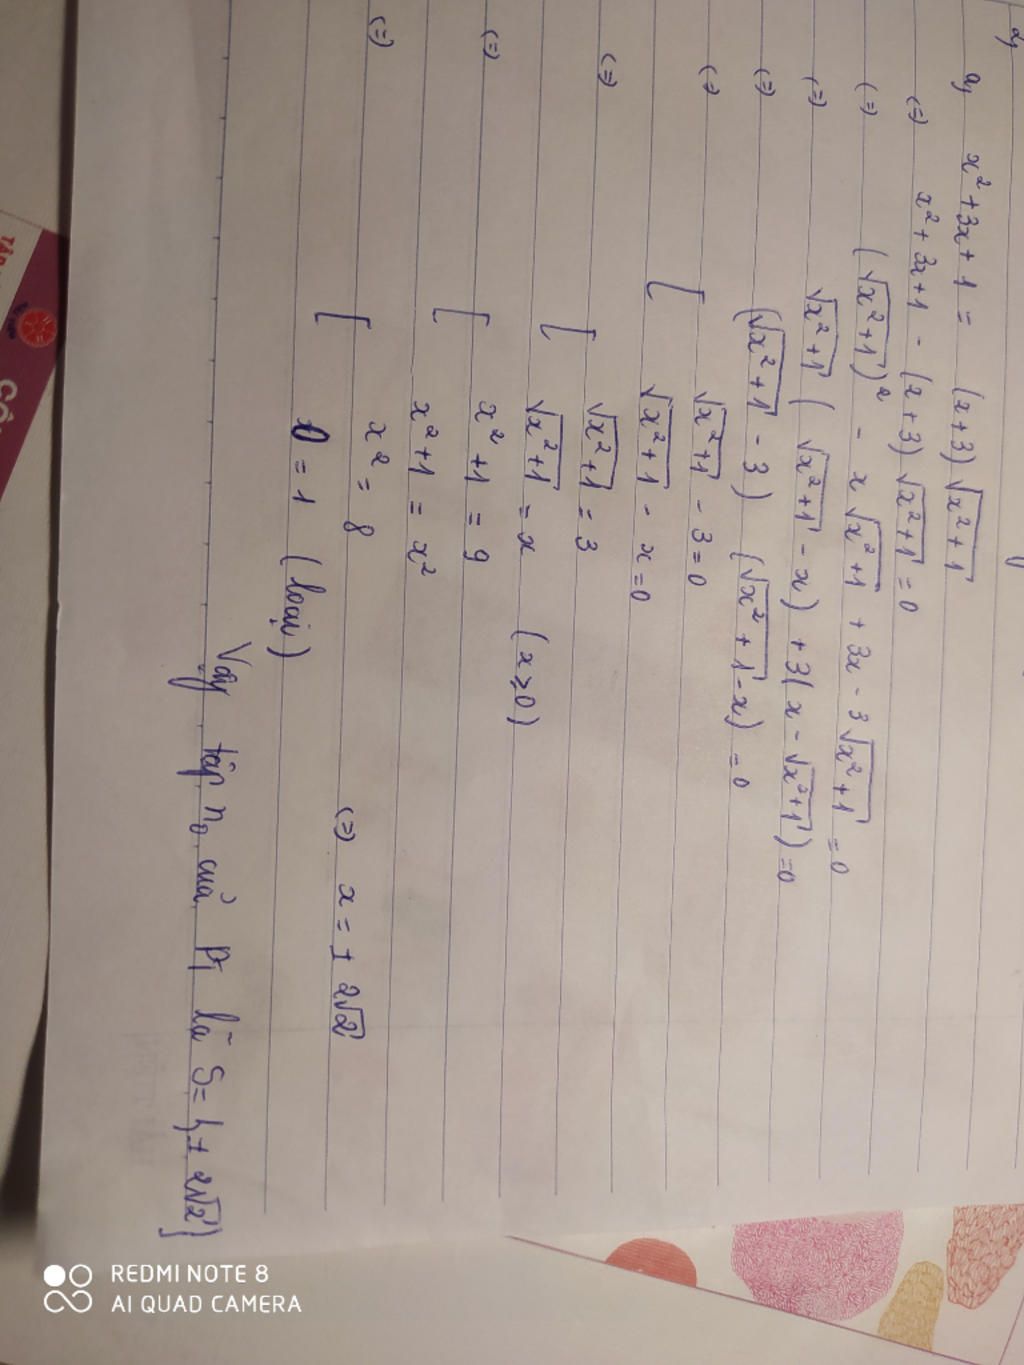 a, x² + 3x + 1 = (x+3)√(x²+1)
(=) x² + 3x + 1 - (x+3)√(x²+1) = 0
(=) (√(x²+1))² - x√(x²+1) + 3x - 3√(x²+1) = 0
(=) √(x²+1) (√(x²+1) - x) + 3(x - √(x²+1)) = 0
(=) (√(x²+1) - 3) (√(x²+1) - x) = 0
(=) [ √(x²+1) - 3 = 0
√(x²+1) - x = 0
(=) [ √(x²+1) = 3
√(x²+1) = x (x ≥ 0)
(=) [ x² + 1 = 9
x² + 1 = x²
(=) [ x² = 8 (=) x = ± 2√2
0 = 1 (loại)
Vậy tập n₀ của PT là S = {± 2√2}
REDMI NOTE 8
AI QUAD CAMERA